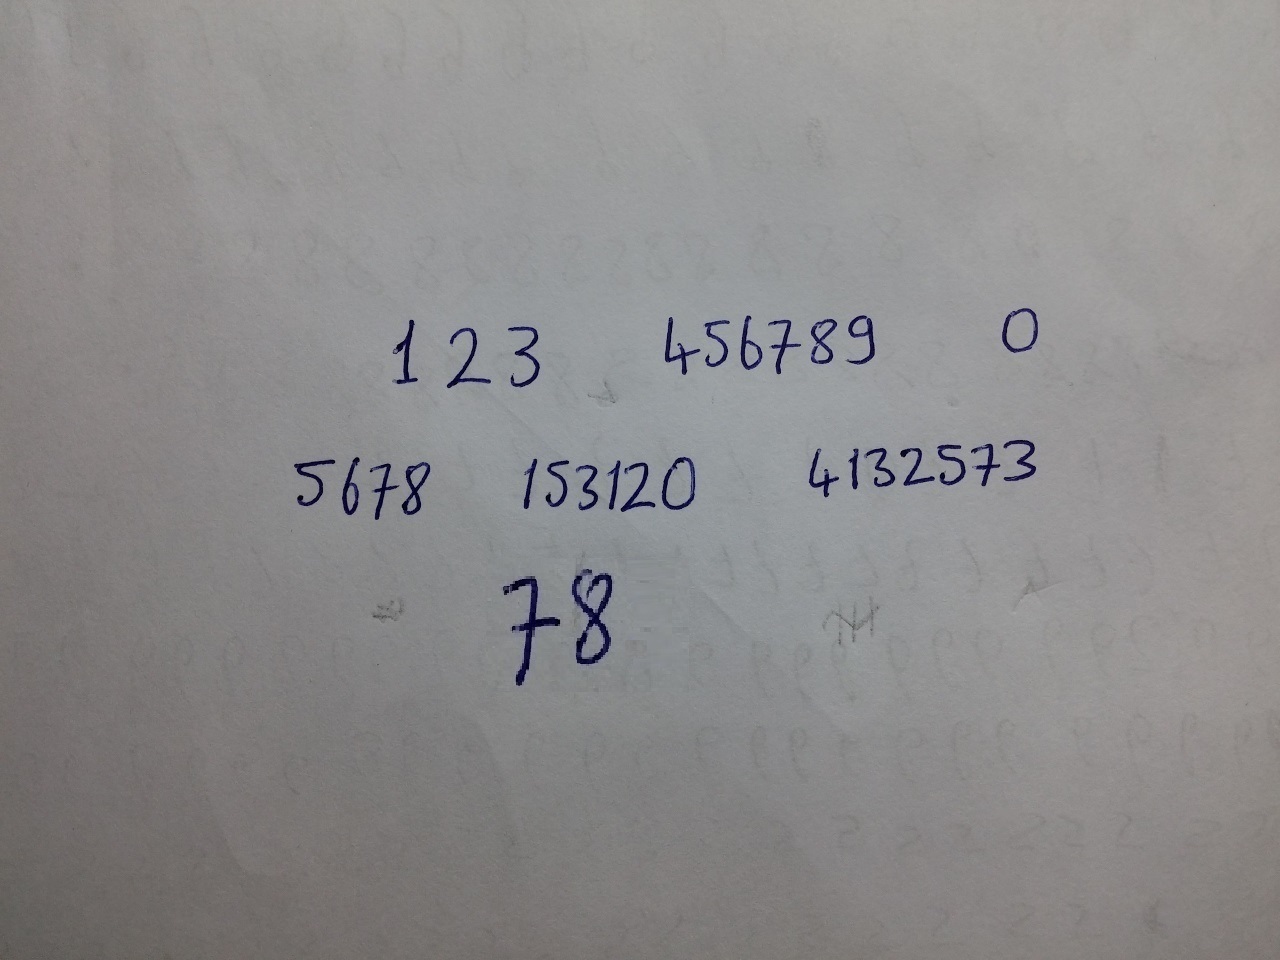 1 2 3 456789 0
5678 153120 4132573
78